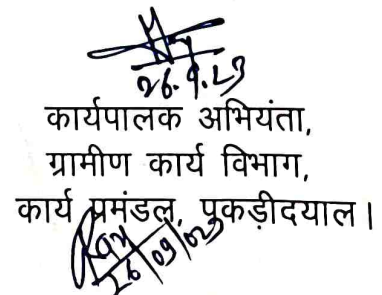 26.9.23
कार्यपालक अभियंता,
ग्रामीण कार्य विभाग,
कार्य प्रमंडल, पकड़ीदयाल।
26/09/023